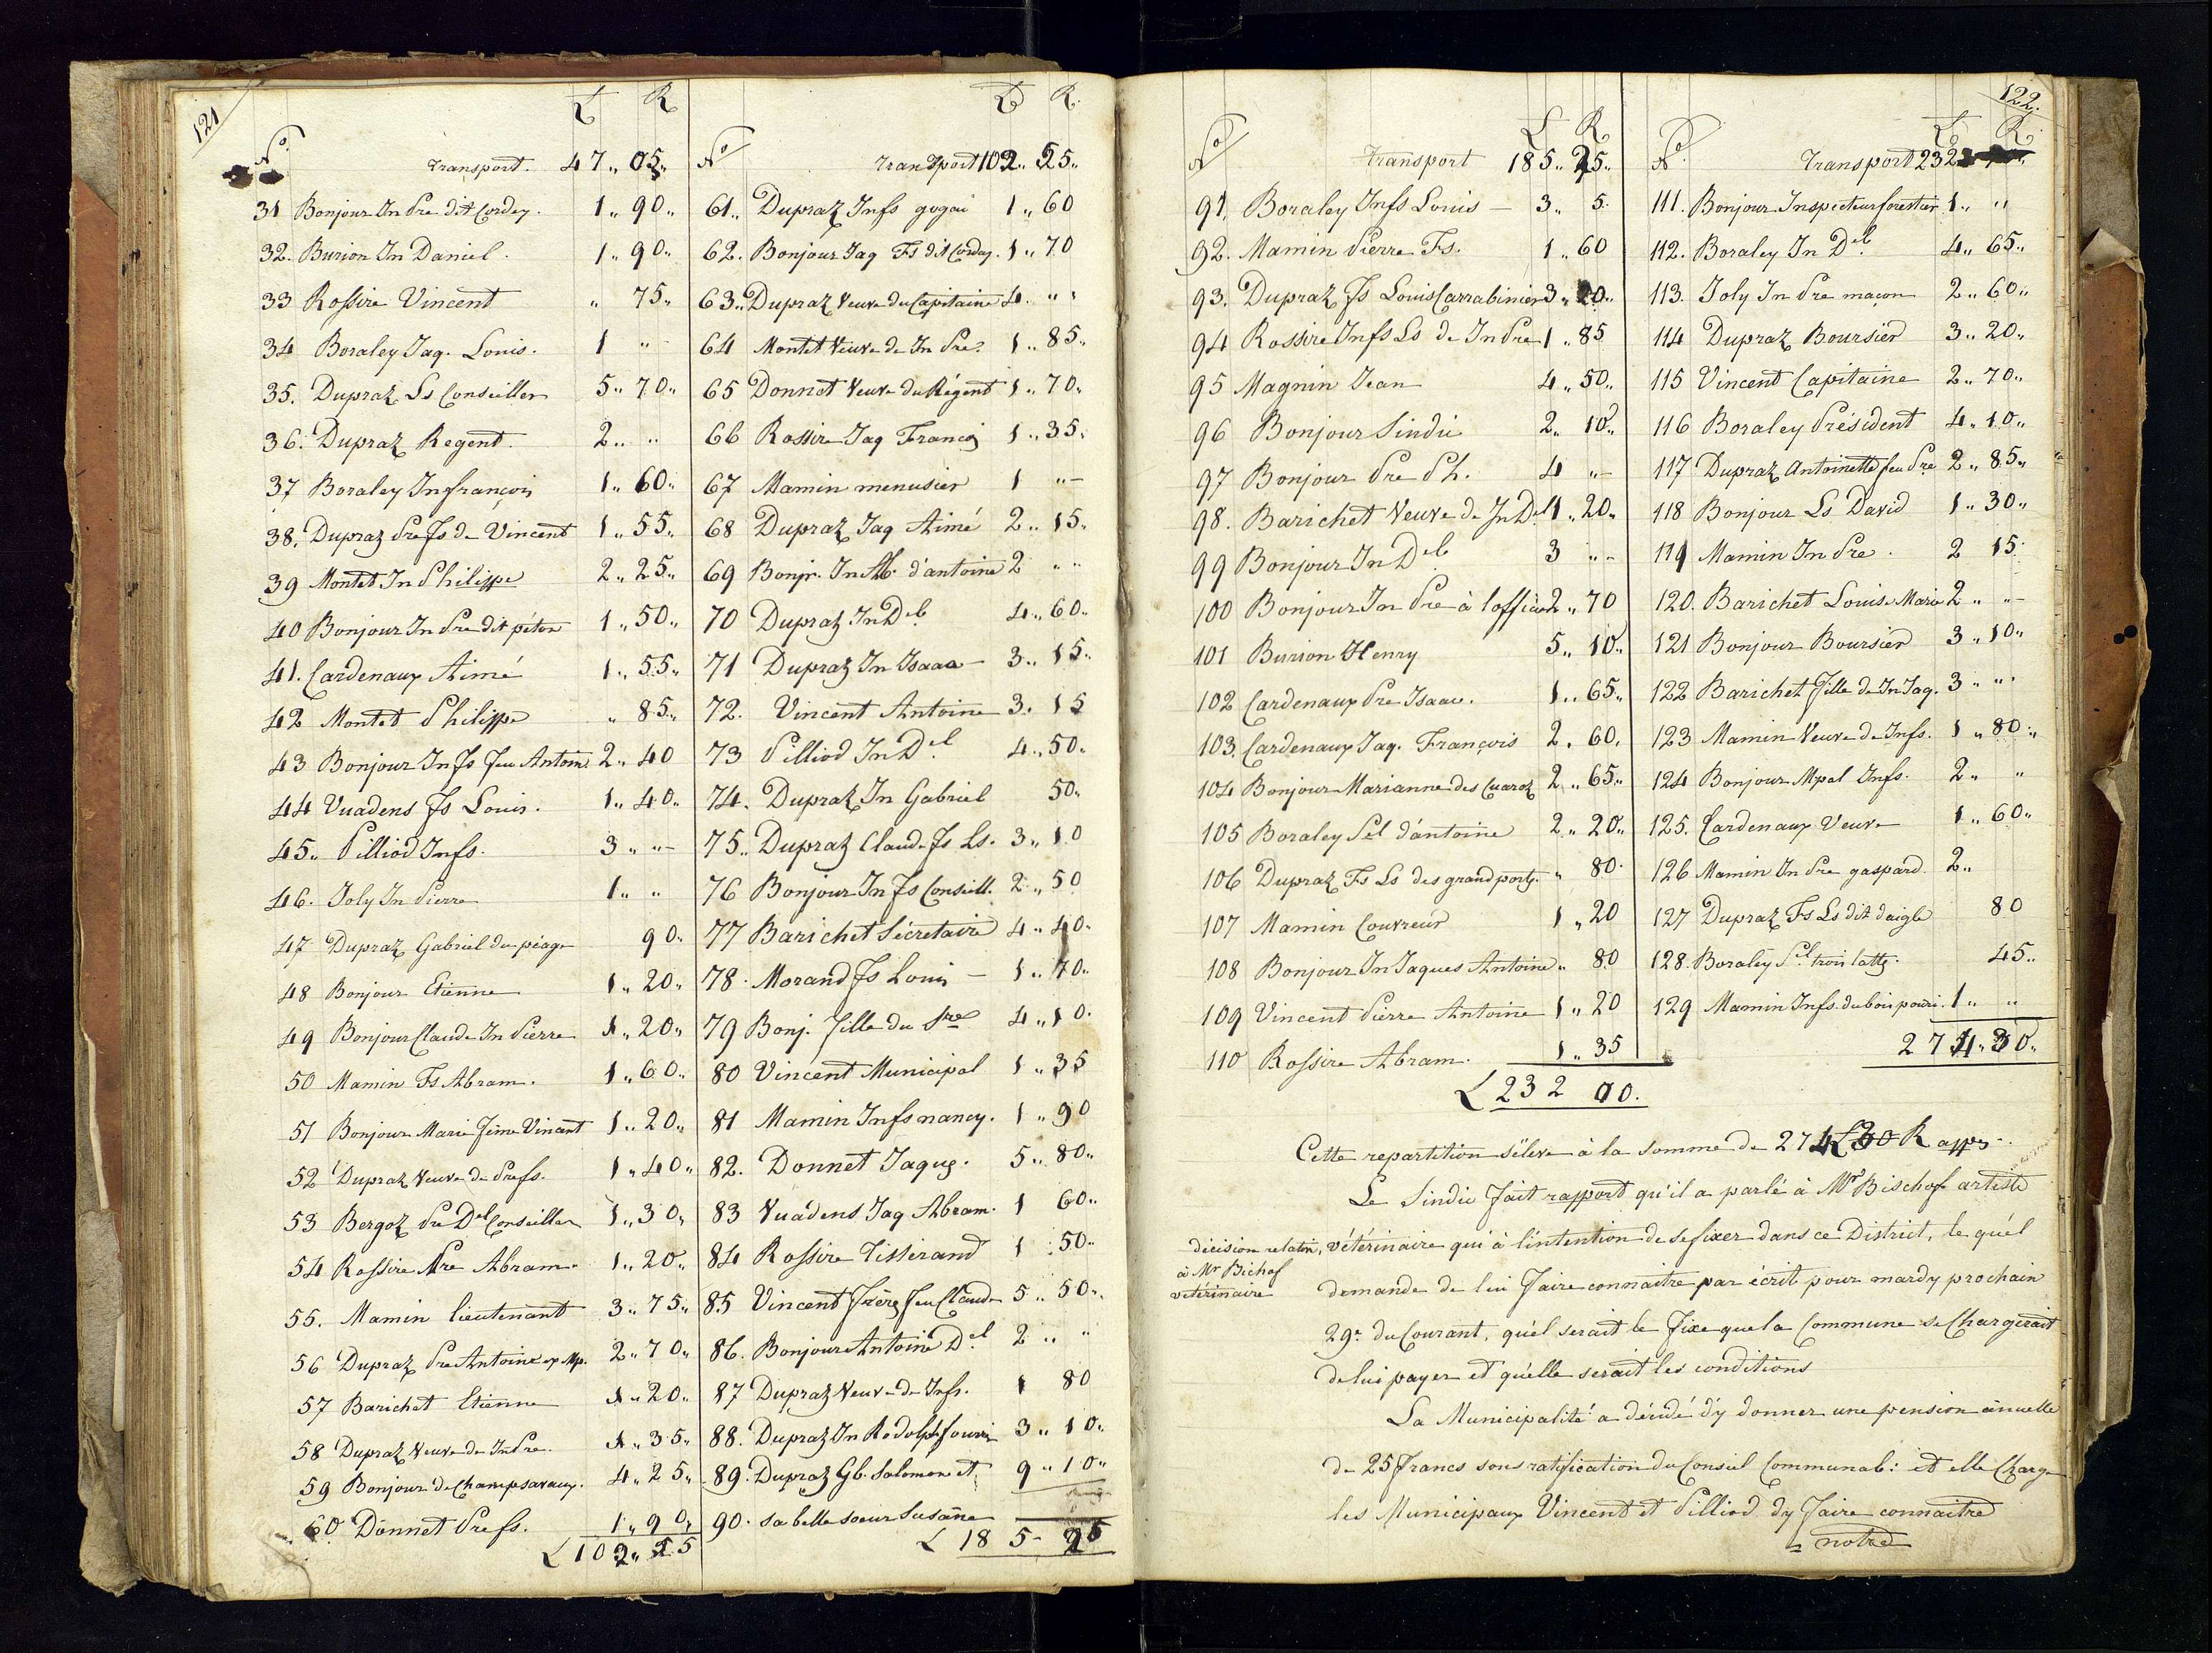 121
L R
N° transport. 47 „ 05 „
31 Bonjour Jn Pre dit Cordey. 1 „ 90 „
32. Burion Jn Daniel. 1 „ 90 „
33 Rossire Vincent „ 75 „
34 Boraley Jaq. Louis. 1 „ -
35. Dupraz Ls Conseiller 5 „ 70 „
36. Dupraz Regent. 2 „ „
37 Boraley Jn françois 1 „ 60 „
38. Dupraz Pre fs de Vincent 1 „ 55 „
39 Montet Jn Philippe 2 „ 25 „
40 Bonjour Jn Pre dit péton 1 „ 50 „
41. Cardenaux Aimé 1 „ 55 „
42 Montet Philippe „ 85 „
43 Bonjour Jn fs feu Antoine 2 „ 40
44 Vuadens fs Louis. 1 „ 40 „
45 „ Pilliod Jn fs. 3 „ „ -
46. Joly Jn Pierre 1 „ „
47 Dupraz Gabriel du péage 90 „
48 Bonjour Etienne 1 „ 20 „
49 Bonjour Claude Jn Pierre 1 „ 20 „
50 Mamin Fs Abram. 1 „ 60 „
51 Bonjour Marie feme Vincent 1 „ 20 „
52 Dupraz Veuve de Pre fs. 1 „ 40 „
53 Bergoz Pre Del Conseiller 1 „ 30 „
54 Rossire Pre Abram. 1 „ 20 „
55. Mamin lieutenant 3 „ 75 „
56 Dupraz Pre Antoine ex Mp. 2 „ 70 „
57 Barichet Etienne 1 „ 20 „
58 Dupraz Veuve de Jn Pre. 1 „ 35 „
59 Bonjour de Champsavaux. 4 „ 25 „
60. Donnet Pre fs. 1 „ 90 „
L 102 „ 25
L R.
N° transport 102 „ 25 „
61 „ Dupraz Jn fs gogai 1 „ 60
62. Bonjour Jaq Fs dit Cordey. 1 „ 70
63 „ Dupraz Veuve du Capitaine 4 „ „
64 Montet Veuve de Jn Pre. 1 „ 85 „
65 Donnet Veuve du Régent 1 „ 70 „
66 Rossire Jaq François 1 „ 35 „
67 Mamin menusier 1 „ -
68 Dupraz Jaq Aimé 2 „ 15 „
69 Bonjr. Jn Ab. d'antoine 2 „ „
70 Dupraz Jn Del 4 „ 60 „
71 Dupraz Jn Isaac - 3 „ 15 „
72. Vincent Antoine 3. 15
73 Pilliod Jn Del 4 „ 50 „
74. Dupraz Jn Gabriel 50 „
75 „ Dupraz Claude fs Ls. 3 „ 10
76 Bonjour Jn Fs Conseill. 2 „ 50
77 Barichet Sécretaire 4 „ 40 „
78. Morand fs Louis - 1 „ 70 „
79 Bonj. fille du Sre 4 „ 10.
80 Vincent Municipal 1 „ 35
81 Mamin Jn fs nancy. 1 „ 90
82. Donnet Jaques. 5 „ 80 „
83 Vuadens Jaq Abram. 1 60 „
84 Rossire Tisserand 1 50 „
85 Vincent frères feu Claude 5 „ 50 „
86. Bonjour Antoine Del 2 „ „
87 Dupraz Veuve de Jn fs. 1 80
88. Dupraz Jn Rodolph fourier 3 „ 10 „
89. Dupraz Gb. Salomon et 9 „ 10 „
90. sa belle soeur Susanne
L 185 - 25
122.
L R
N° transport 185 „ 25 „
91. Boraley Jn fs Louis - 3 „ 5.
92. Mamin Pierre Fs. 1 „ 60
93. Dupraz fs Louis Carrabinier 3 „ 20 „
94 Rossire Jn fs Ls de Jn Pre 1 „ 85
95 Magnin Jean 4 „ 50 „
96 Bonjour Sindic 2 „ 10 „
97 Bonjour Pre Ph. 4 „ -
98. Barichet Veuve de Jn Del 1 „ 20 „
99 Bonjour Jn Del 3 „ -
100 Bonjour Jn Pre à l'officier 2 „ 70
101 Burion Henry 5 „ 10 „
102 Cardenaux Pre Isaac. 1 „ 65 „
103. Cardenaux Jaq. François 2 „ 60 „
104 Bonjour Marianne des Cuaroz 2 „ 65 „
105 Boraley Sel d'antoine 2 „ 20 „
106 Dupraz Fs Ls des grand ports. „ 80.
107 Mamin Couvreur 1 „ 20
108 Bonjour Jn Jaques Antoine „ 80
109 Vincent Pierre Antoine 1 „ 20
110 Rossire Abram. 1 „ 35
L 232 00.
L R
N° transport 232
111. Bonjour Inspecteur forestier 1 „ „
112. Boraley Jn Del 4 „ 65 „
113. Joly Jn Pre maçon 2 „ 60 „
114 Dupraz Boursier 3 „ 20 „
115 Vincent Capitaine 2 „ 70 „
116 Boraley Président 4 „ 10 „
117 Dupraz Antoinette feu Pre 2 „ 85 „
118 Bonjour Ls David 1 „ 30 „
119 Mamin Jn Pre. 2 15.
120. Barichet Louise Marie 2 „ -
121 Bonjour Boursier 3 „ 10 „
122 Barichet fille de Jn Jaq. 3 „ „
123 Mamin Veuve de Jn fs. 1 „ 80 „
124 Bonjour Mpal Jn fs. 2 „ „
125. Cardenaux Veuve 1 „ 60 „
126 Mamin Jn Pre gaspard 2 „
127 Dupraz Fs Ls dit d'aigle 80
128. Boraley Sel trois lattes. 45 „
129 Mamin Jn fs. du bois pouri. 1 „ „
274 „ 30 „
Cette repartition s'éleve à la somme de 274 L 30 R appes.
Le Sindic fait rapport qu'il a parlé à Mr Bischof artiste
décision relativ,
à Mr Bichof
vétérinaire
vétérinaire qui à l'intention de se fixer dans ce District, le qu'el
demande de lui faire connaitre par écrit pour mardy prochain
29e du Courant, qu'el serait le fixe que la Commune se Chargerait
de lui payer et qu'elle serait les conditions
La Municipalité a décidé d'y donner une pension annuelle
de 25 francs sous ratification du Conseil Communal: et elle Charge
les Municipaux Vincent et Pilliod d'y faire connaitre
= notre